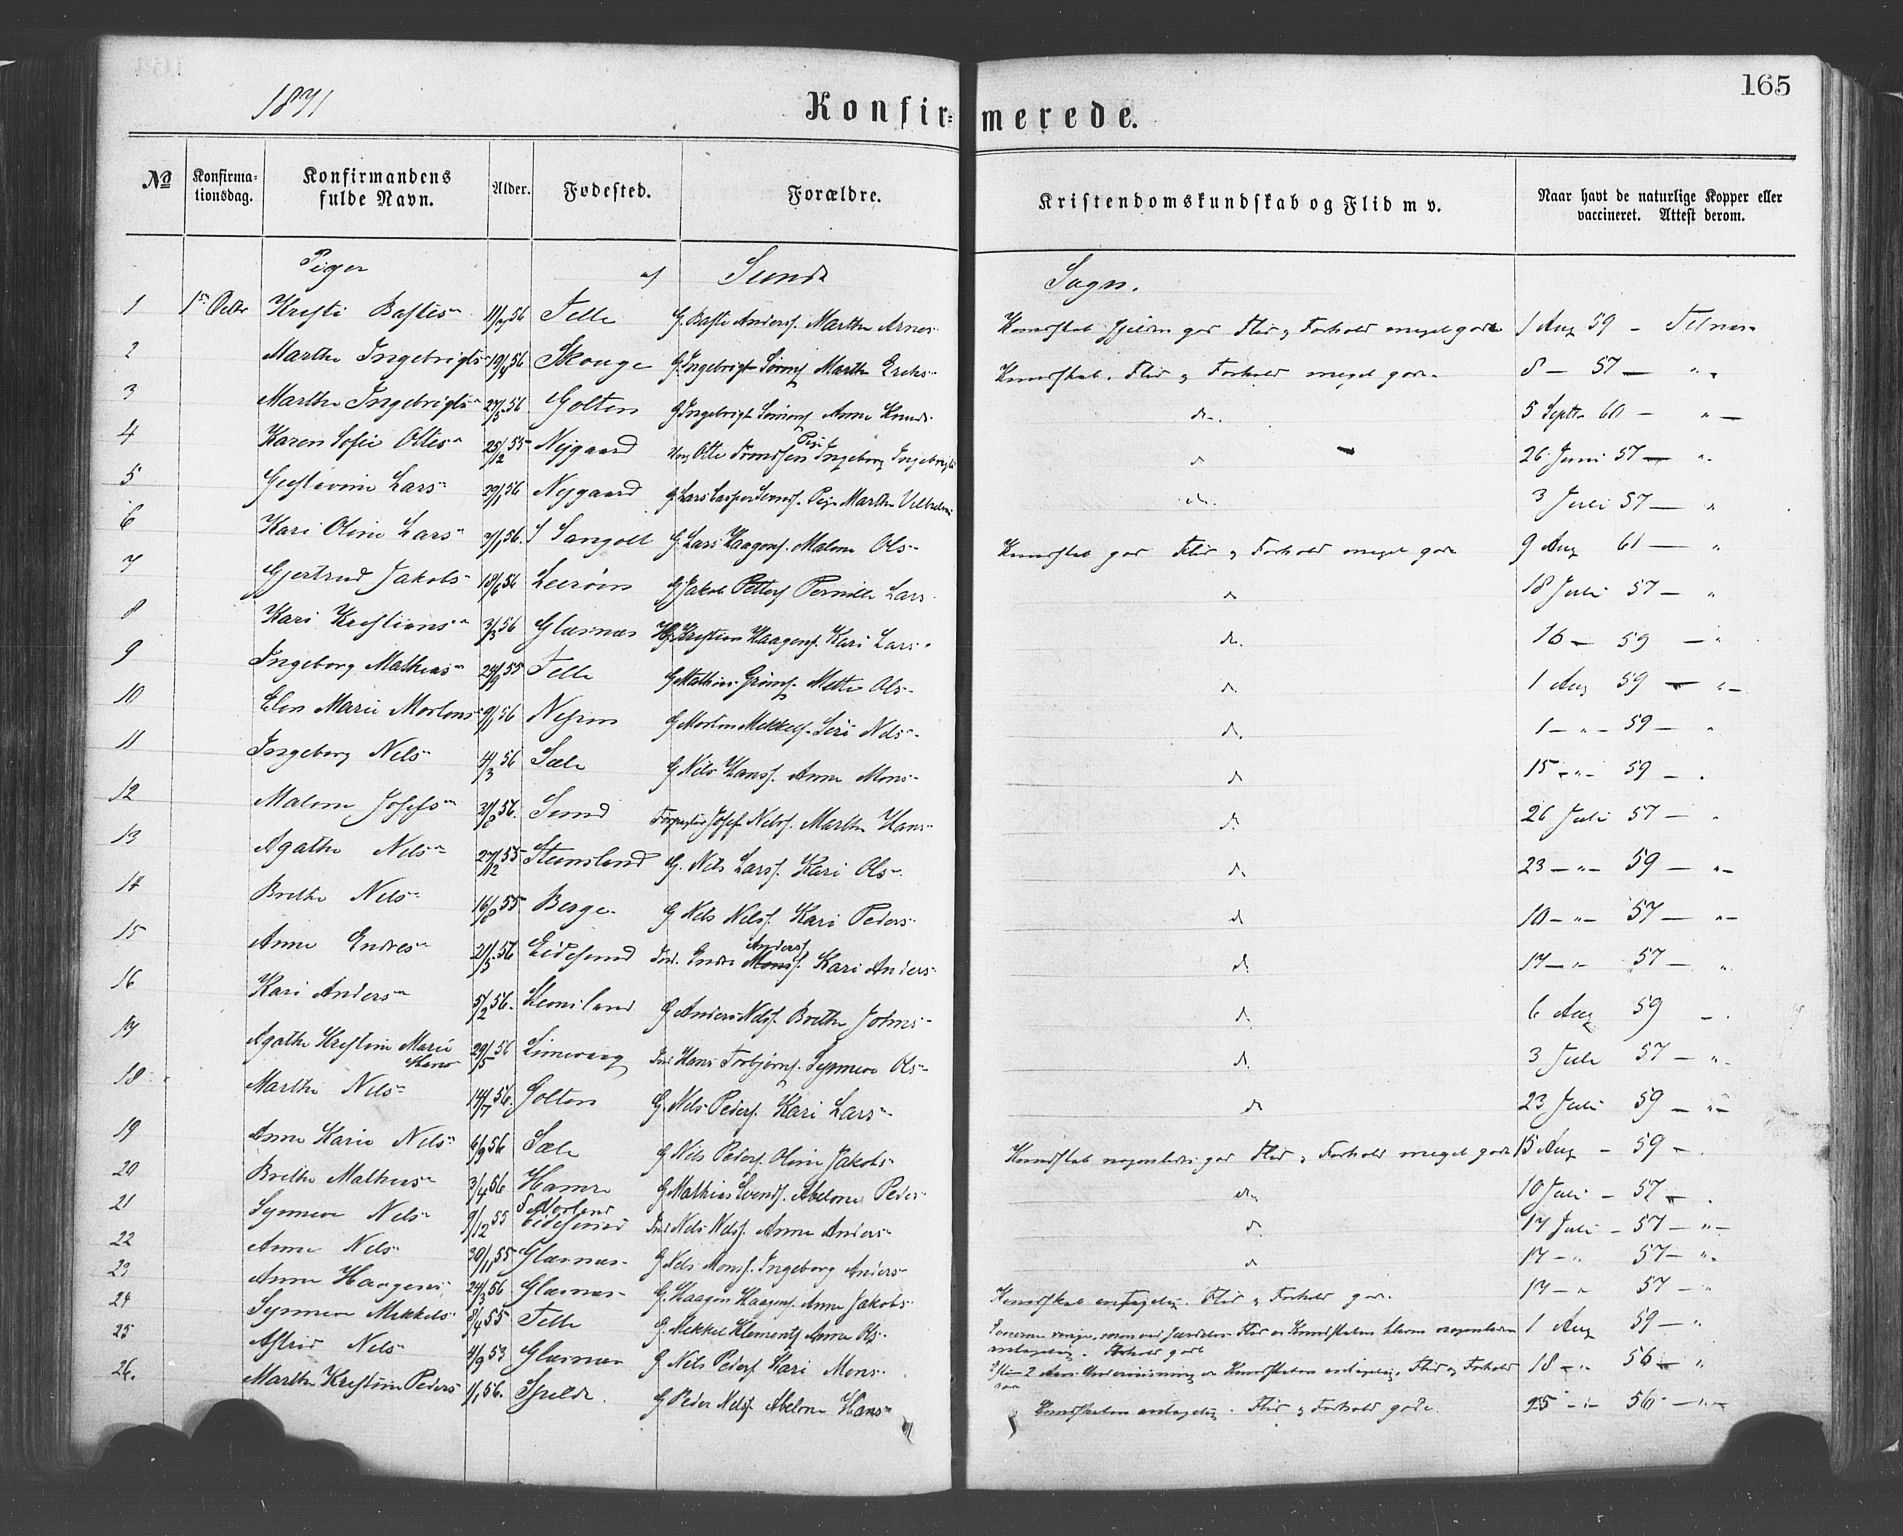 165
1871
Konfir= merede.
No Konfirma-tionsdag. Konfirmandens fulde Navn. Alder. Fødested. Forældre. Kristendomskundskab og Flid m v. Naar havt de naturlige Kopper eller vaccineret. Attest derom.
Piger af Sund Sogn.
1 1st Octbr Kristi Basties 56 Telle G. Bastie Anders. Marthe Arnes Kundskab god Flid og Forhold meget gode 1 Aug 59 -
2 Marthe Ingebrigts 19/4 56 Skouge G. Ingebrigt Marthe Erichs Kundskab, Flid og Forhold meget gode 8 - 57 - "
3 Marthe Ingebrigts 56 Golten G Ingebrigt Anne Knuds do. 5 Septb 60 - " -
4 Karen Sofie Ottes 25/12 55 Nygaard Ung Otte Trondsen Pige Ingeborg Ingebrigts d 26 Juni 57 - "
5 Gustavine Lars 29/1 56 Nygaard G Lars Pige Marthe d. 3 Juli 57 - "
6 Kari Oline Lars 56. S Sangolt G. Lars Haagens. Malene Ols Kundskab god Flid og Forhold meget gode 9 Aug 61 - "
7 Gjertrud Jakobs 18/6 56 Leerøen G Jakob Petters Pernille Lars d 18 Juli 57 - "
8 Kari Kristians 3/3 56 Glæsnæs Kristian Haagens. Kari Lars d. 16 - 59 - "
9 Ingeborg Mathias 24/9 55 Telle G Mathias Grims. Mette Ols d. 1 Aug 59 - " -
10 Elen Marie Mortens 9/1 56 G Morten Mikkels. Siri Nels d. 1 - " - 59 - "
11 Ingeborg Nels 4/3 56 Sæle G Nels Hans. Anne Mons d 15 - " - 59 - .
12 Malene Josefs 56. Sund Josef Nels. Marthe Hans d. 26 Juli 57 - "
13 Agathe Nels 27/12 55 Steensland G. Nels Lars. Kari Ols d. 23 - " - 59 - " -
14 Brithe Nels 16/8 55 Berge G Nels Nels. Kari Peders d 10 - " - 57 - " -
15 Anne Endres 21/5 56 Eidesund Ind. Endre Mons. Anders Kari Anders d. 17 - " 57 - "
16 Kari Anders 5/2 56. Steensland G Anders Nels. Brithe Johns d. 6 Aug 59 - .
17 Agathe Kristine Marie Hans 29/5 56 Limevaag Ind Hans Torbjørns. Synneve Ols d. 3 Juli 57 - "
18 Marthe Nels 14/7 56. Golten G. Nels Peders. Kari Lars d 23 Juli 59 - " -
19 Anne Karie Nels 6/9 56 Sæle G Nels Peders. Oline Jakobs Kundskab nogenledes god Flid og Forhold meget gode 15 Aug - 59 - .
20 Brithe Mathias 3/4 56 Hamre G Mathias Svends. Abelone Peders do. 10 Juli - 57 - .
21 Synneve Nels 9/12 55 Eidesund Ind Nels Nels. Anne Anders d. 17 Juli - 57 - " -
22 Anne Nels 30/11 55 Glæsnæs G Nels Mons. Ingeborg Anders d 17 - " 57 - " .
23 Anne Haagens 24/3 56 Glæsnæs G. Haagen Haagens. Anne Jakobs Kundskab antagelig. Flid og Forhold god. 17 - " 57 - "
24 Synneve Mekkels 8/4 55 Telle G Mekkel Klements Anne Ols. Kundskaben nogenledes antagelig. Forhold godt 1 Aug 59 - "
25 Astrid Nels 4/9 53 Glæsnæs G Nels Peders Kari Mons. 2 Aars Underviisning er Kundskaben antagelig. Flid og Forhold 18 - " 56 - "
26. Marthe Kristine Peders 1/1 56. Spilde. G Peder Nels. Abelone Hans Kundskaben antagelig. Flid og Forhold gode. 25 - " - 56 - " -